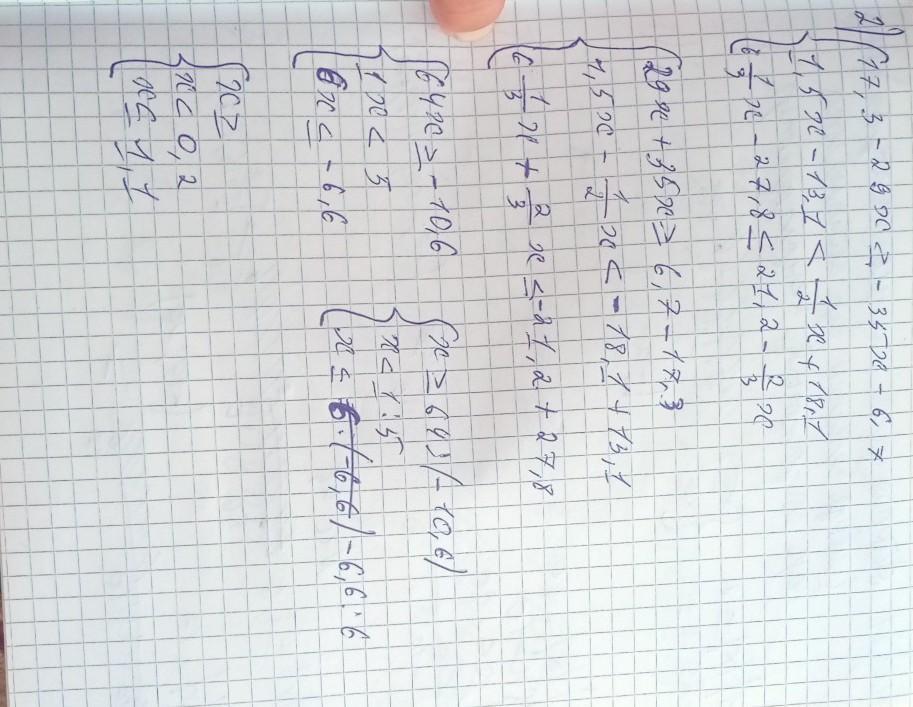 2) 17,3 - 29x ≥ - 35x - 6,7
1,5x - 13,1 < 1/2 x + 18,1
6 1/3 x - 27,8 ≤ 21,2 - 2/3 x
29x + 35x ≥ 6,7 - 17,3
1,5x - 1/2 x < - 18,1 + 13,1
6 1/3 x + 2/3 x ≤ -21,2 + 27,8
64x ≥ - 10,6
1x < 5
6x ≤ - 6,6
x ≥ 64 : (- 10,6)
x < 1 : 5
x ≤ - 6,6 : 6
x ≥
x < 0,2
x ≤ 1,1